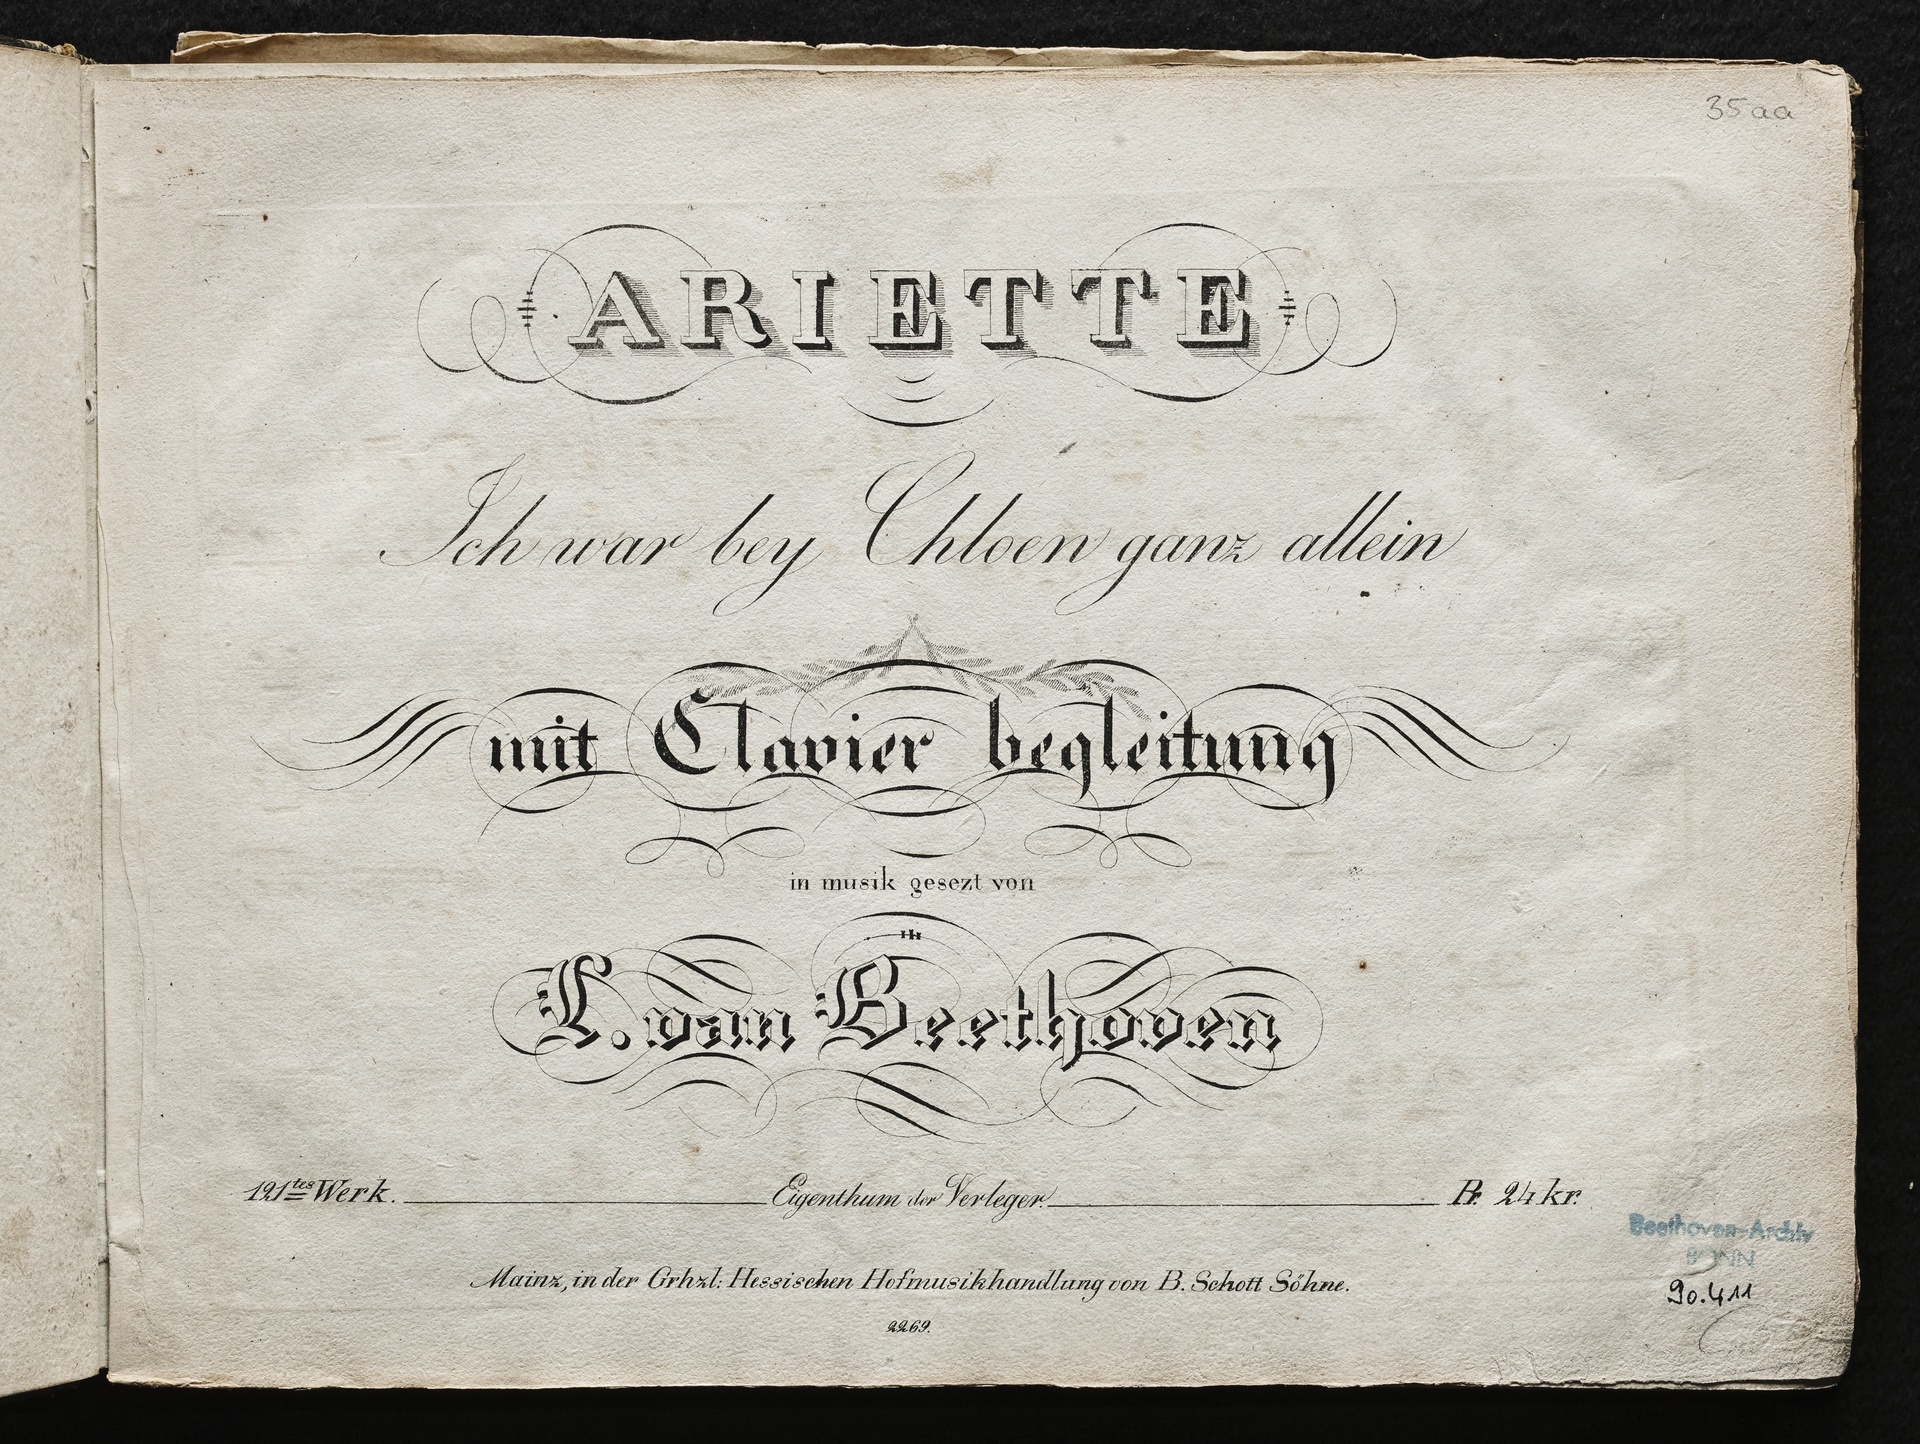 35aa
ARIETTE
Ich war bey Chloen ganz allein
mit Clavier begleitung
in musik gesezt von
L. van Beethoven
121tes Werk. Eigenthum der Verleger. Pr. 24 kr.
Mainz, in der Grhzl: Hessischen Hofmusikhandlung von B. Schott Söhne.
2269.
Beethoven-Archiv
BONN
90.411